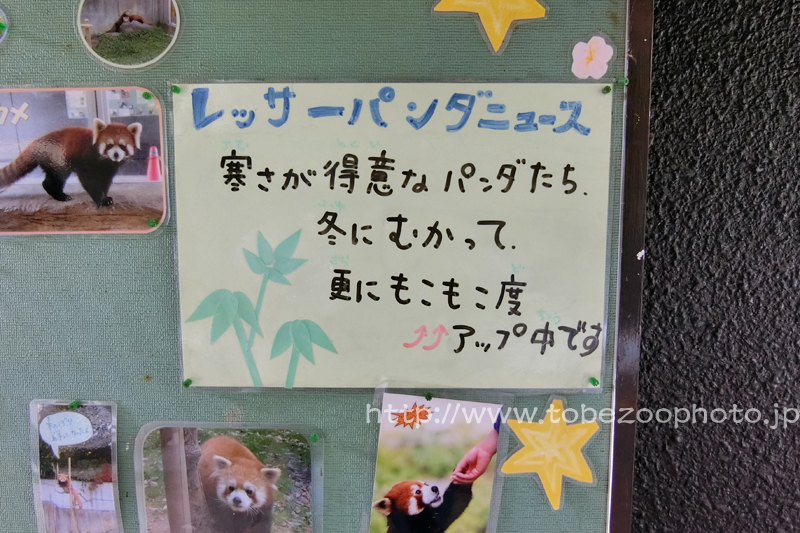 レッサーパンダニュース
寒さが得意なパンダたち.
冬にむかって.
更にもこもこ度
アップ中です
http://www.tobezoophoto.jp